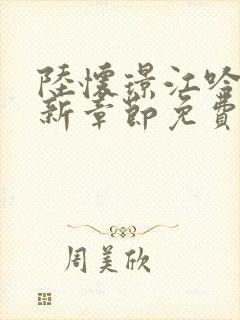 陸懷璟江哈
新章節免費
周美欣